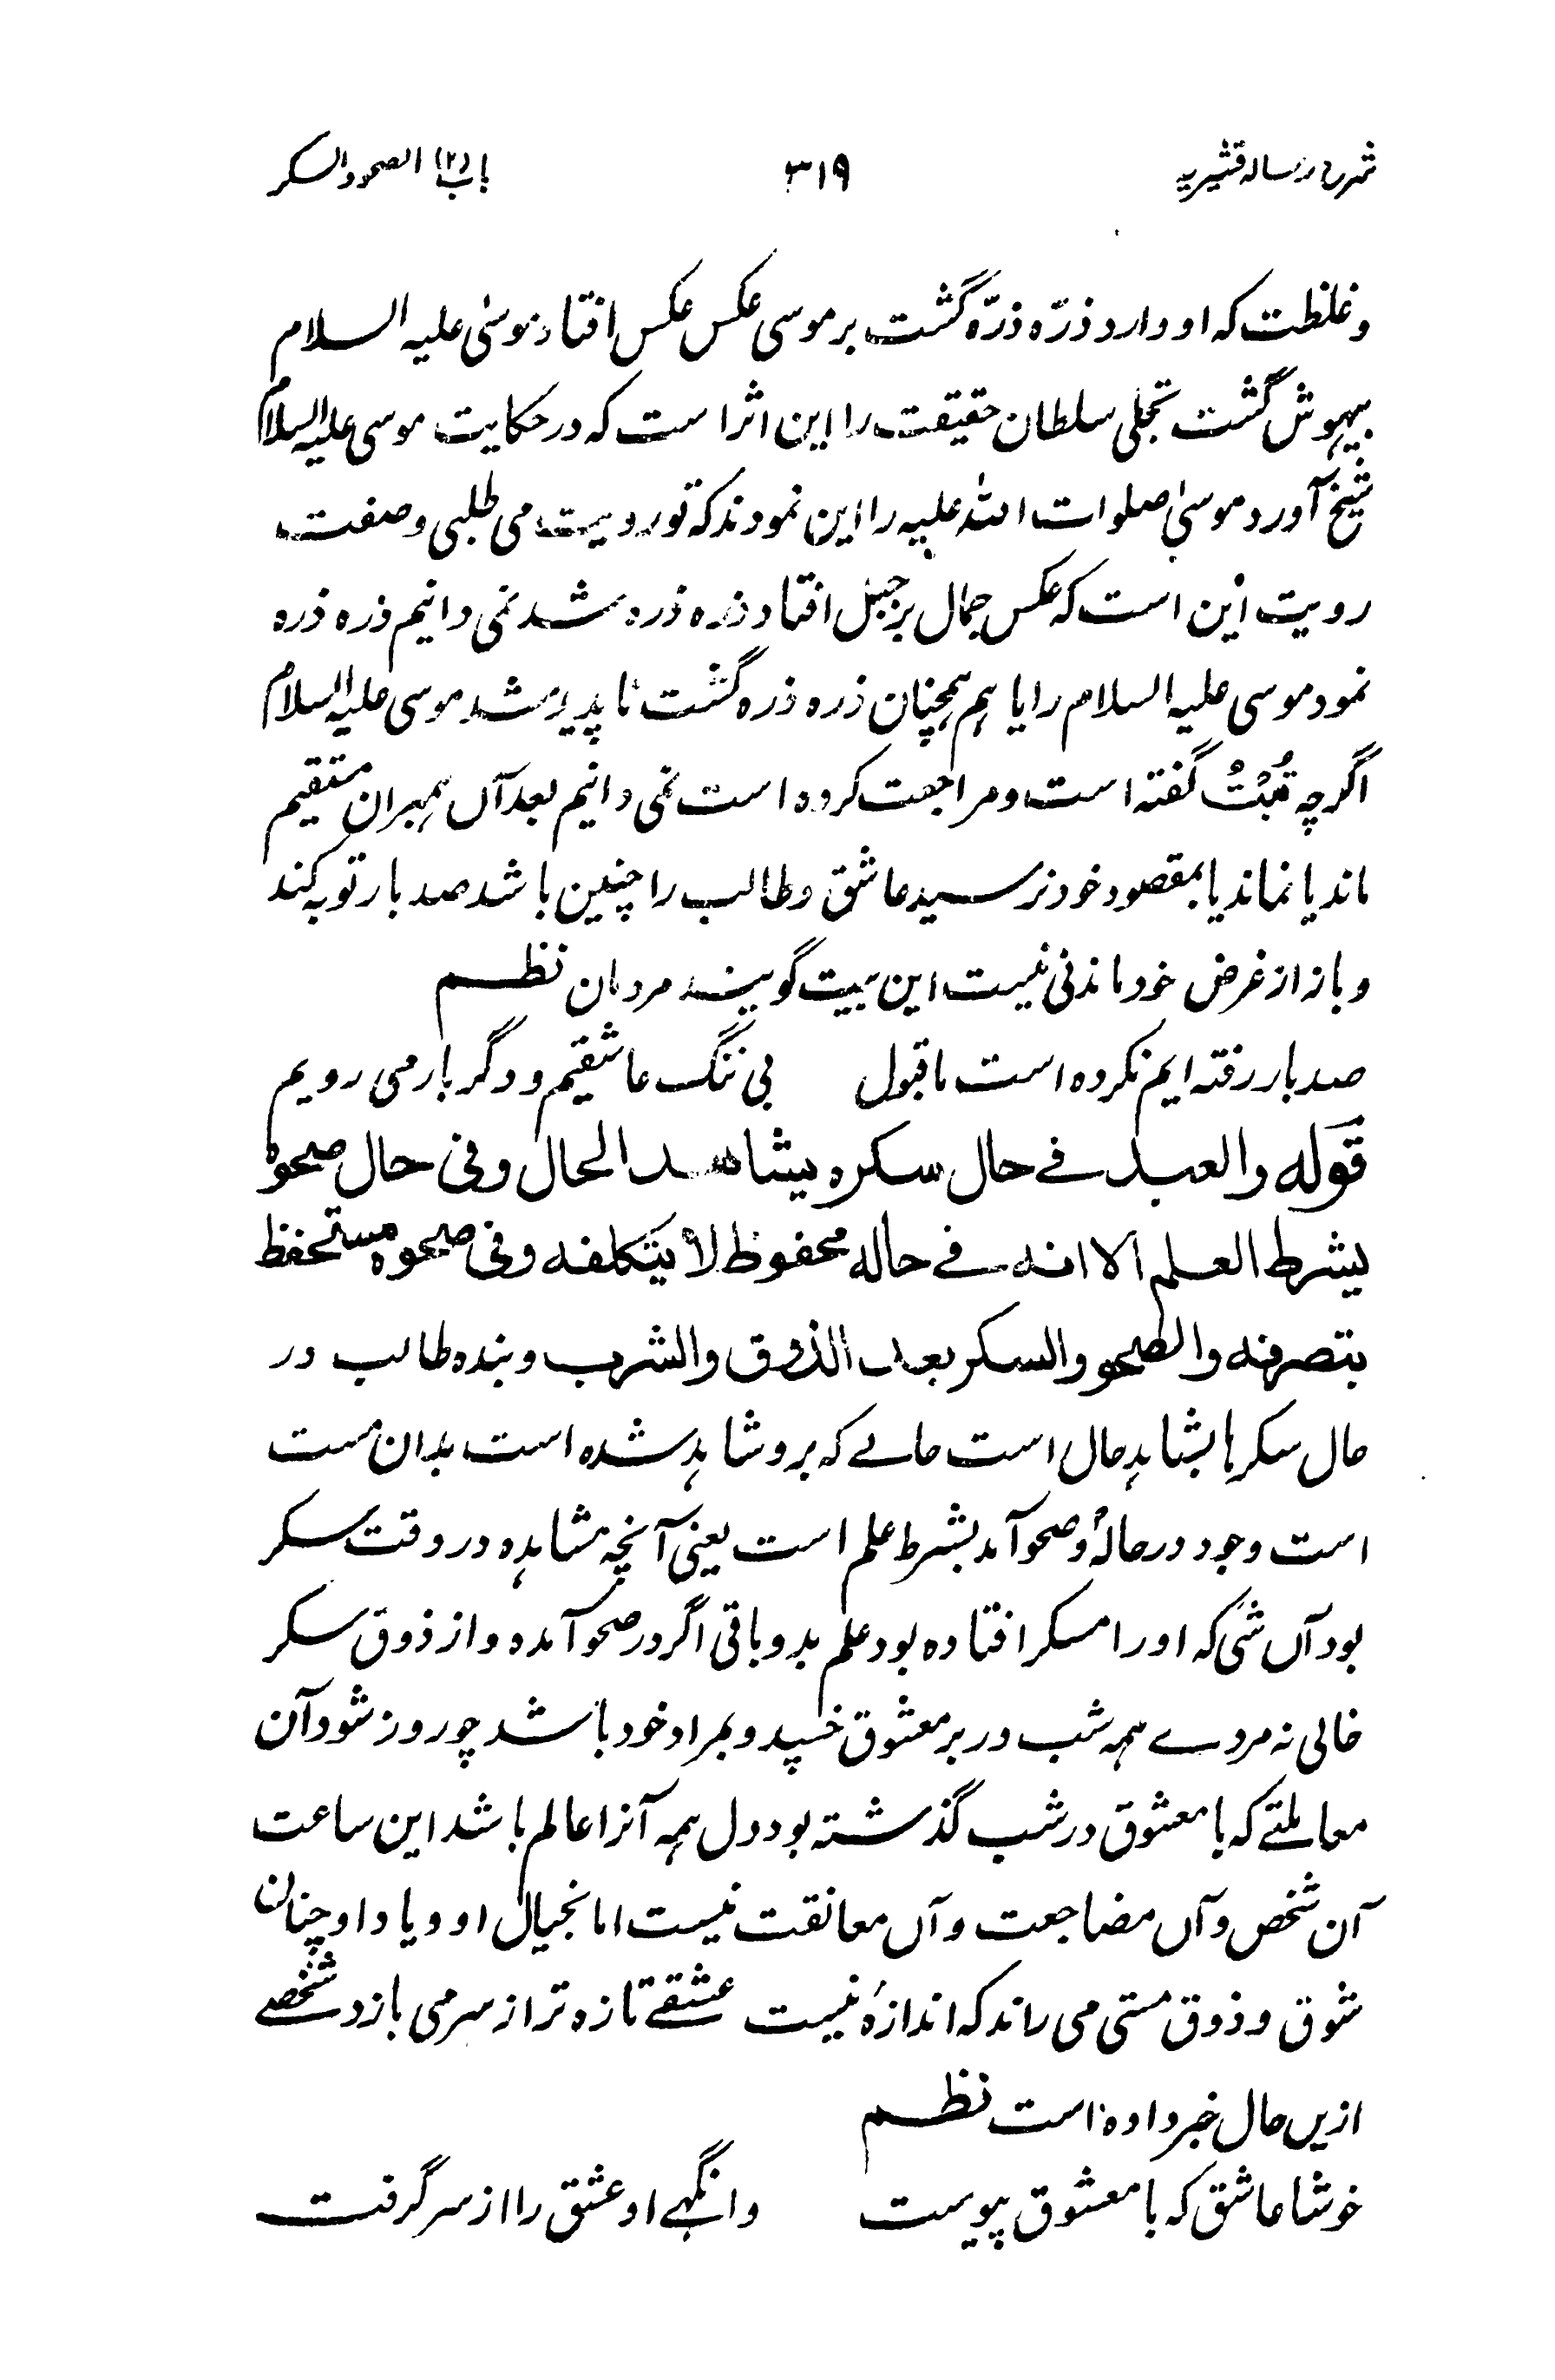 شرح رساله قشیریه ۳۱۹ باب (۲) الصحو والسکر
وغلظت که او وارد ذرّه ذرّه گشت بر موسی عکس عکس افتاد موسیٰ علیه السلام
بیهوش گشت تجلی سلطان حقیقت را این اثر است که در حکایت موسی علیه السلام
شیخ آورد موسیٰ صلوات الله علیه را این نمودند که تو رویت می طلبی و صفت
رویت این است که عکس جمال بر جبل افتاد ذره ذره شد نمی دانیم ذره ذره
نمود موسی علیه السلام را یا هم همچنان ذره ذره گشت نا پدید شد موسی علیه السلام
اگرچه تُبْتُ گفته است و مراجعت کرده است نمی دانیم بعد آں همبران مستقیم
ماند یا نماند یا بمقصود خود نرسید عاشق و طالب را چنین باشد صد بار توبه کند
و باز از غرض خود ماندنی نیست این بیت گویند مردمان نظم
صد بار رفته ایم نکرده است ما قبول بی ننگ عاشقیم و دگر بار می رویم
قوله والعبد فے حال سکره یشاهد الحال وفی حال صحوه
یشرط العلم الا انه فے حاله محفوظ لا یتکلفه وفی صحوه مستحفظ
بتصرفه والصحو والسکر بعد الذوق والشرب و بنده طالب در
حال سکرها بشاهد حال است حالے که برو شاهد شده است بدان مست
است وجود در حالهٔ وصحو آمد بشرط علم است یعنی آنچه مشاهده در وقت سکر
بود آں شی که او را مسکر افتاده بود علم بدو باقی اگر در صحو آمده و از ذوق سکر
خالی نه مردے همه شب در بر معشوق خسپد و بمراد خود باشد چو روز شود آن
معاملتے که با معشوق در شب گذشته بود دل همه آنرا عالم باشد این ساعت
آن شخص و آں مضاجعت و آں معانقت نیست اما بخیال او و یاد او چنان
شوق و ذوق مستی می راند که اندازهٔ نیست عشقے تازه تر از سر می بازد شخصے
ازیں حال خبر داده است نظم
خوشا عاشق که با معشوق پیوست وانگہے او عشق را از سر گرفت